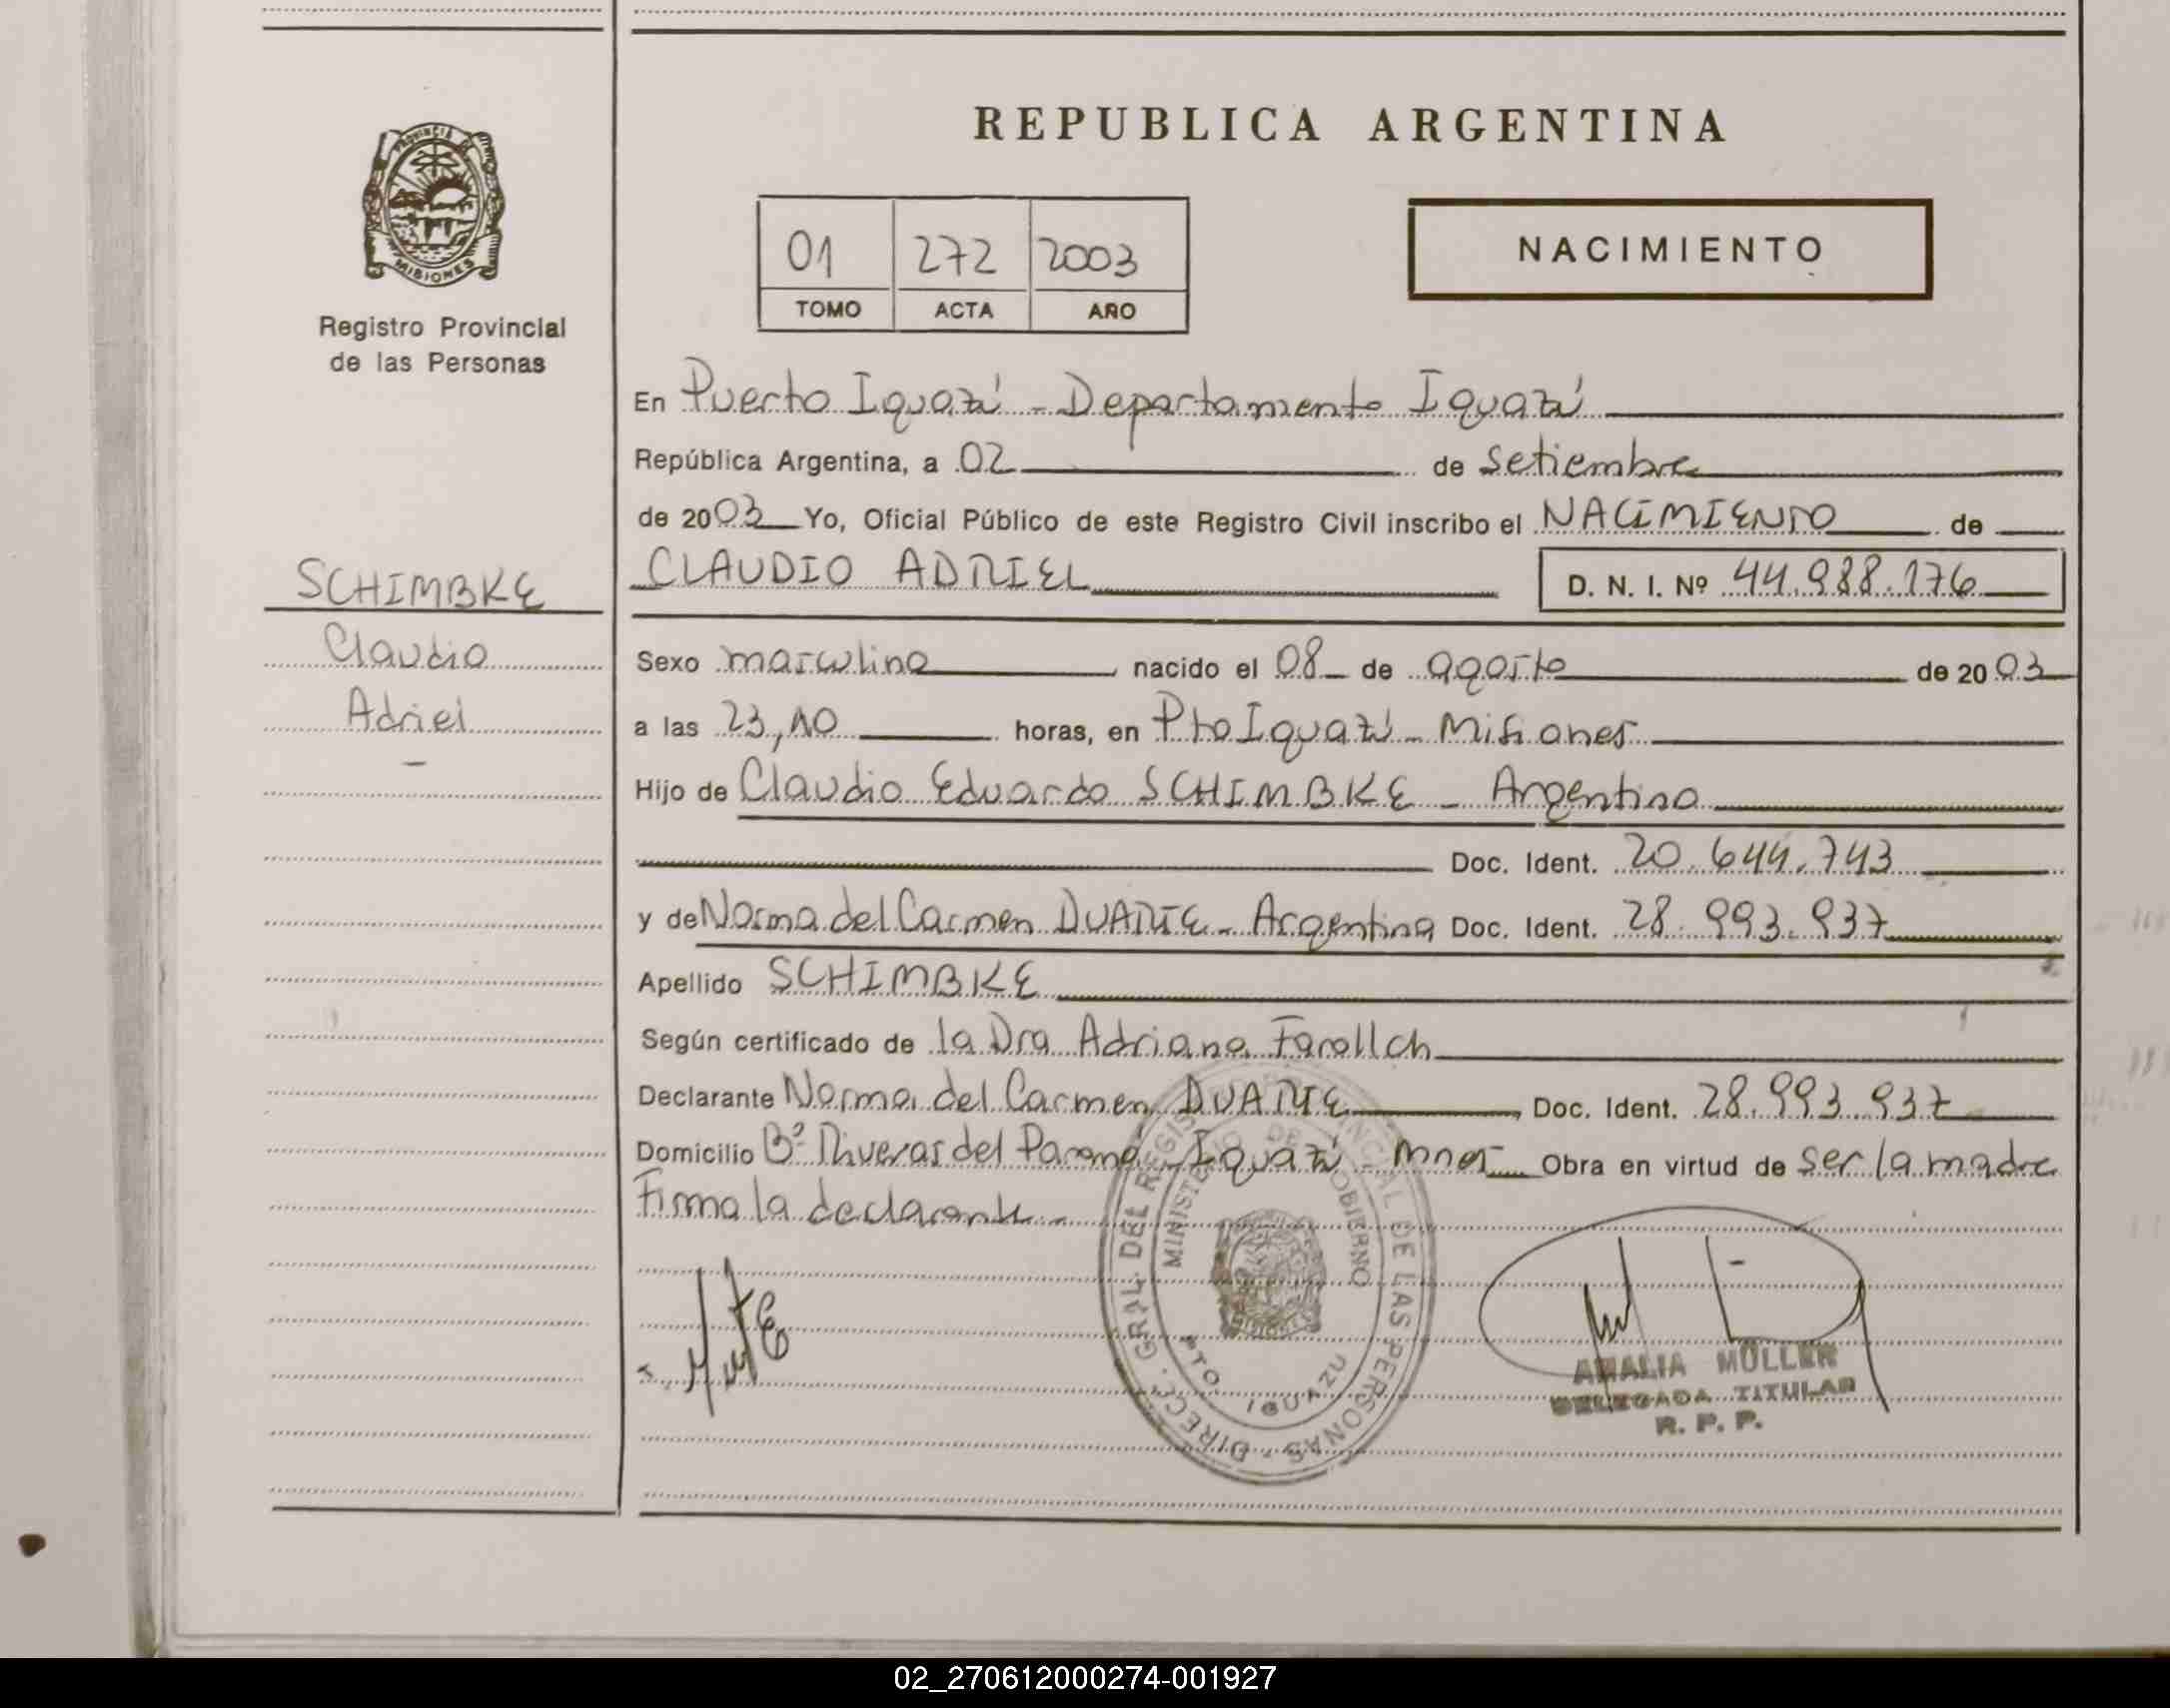 REPUBLICA ARGENTINA
PROVINCIA DE
MISIONES
Registro Provincial
de las Personas
01 272 2003
TOMO ACTA AÑO
NACIMIENTO
En Puerto Iguazú - Departamento Iguazú
República Argentina, a 02 de setiembre
de 2003 Yo, Oficial Público de este Registro Civil inscribo el NACIMIENTO de
CLAUDIO ADRIEL D. N. I. Nº 44.988.176
SCHIMBKE
Claudio
Adriel
-
Sexo masculino nacido el 08 de agosto de 2003
a las 23,10 horas, en Pto Iguazú - Misiones
Hijo de Claudio Eduardo SCHIMBKE - Argentino
Doc. Ident. 20.644.743
y de Norma del Carmen DUARTE - Argentina Doc. Ident. 28.993.937
Apellido SCHIMBKE
Según certificado de la Dra Adriana
Declarante Norma del Carmen DUARTE, Doc. Ident. 28.993.937
Domicilio Bº Riveras del Paraná - Iguazú - Mnes Obra en virtud de ser la madre
Firma la declarante -
DIRECC. GRAL. DEL REGISTRO PROVINCIAL DE LAS PERSONAS
MINISTERIO DE GOBIERNO
PTO. IGUAZU
AMALIA MÜLLER
DELEGADA TITULAR
R. P. P.
02_270612000274-001927